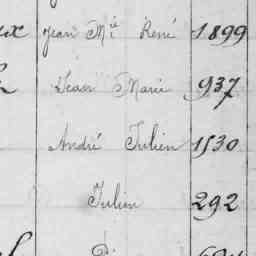 Jean Mie René 1899
Jean Marie 937
André Julien 1530
Julien 292